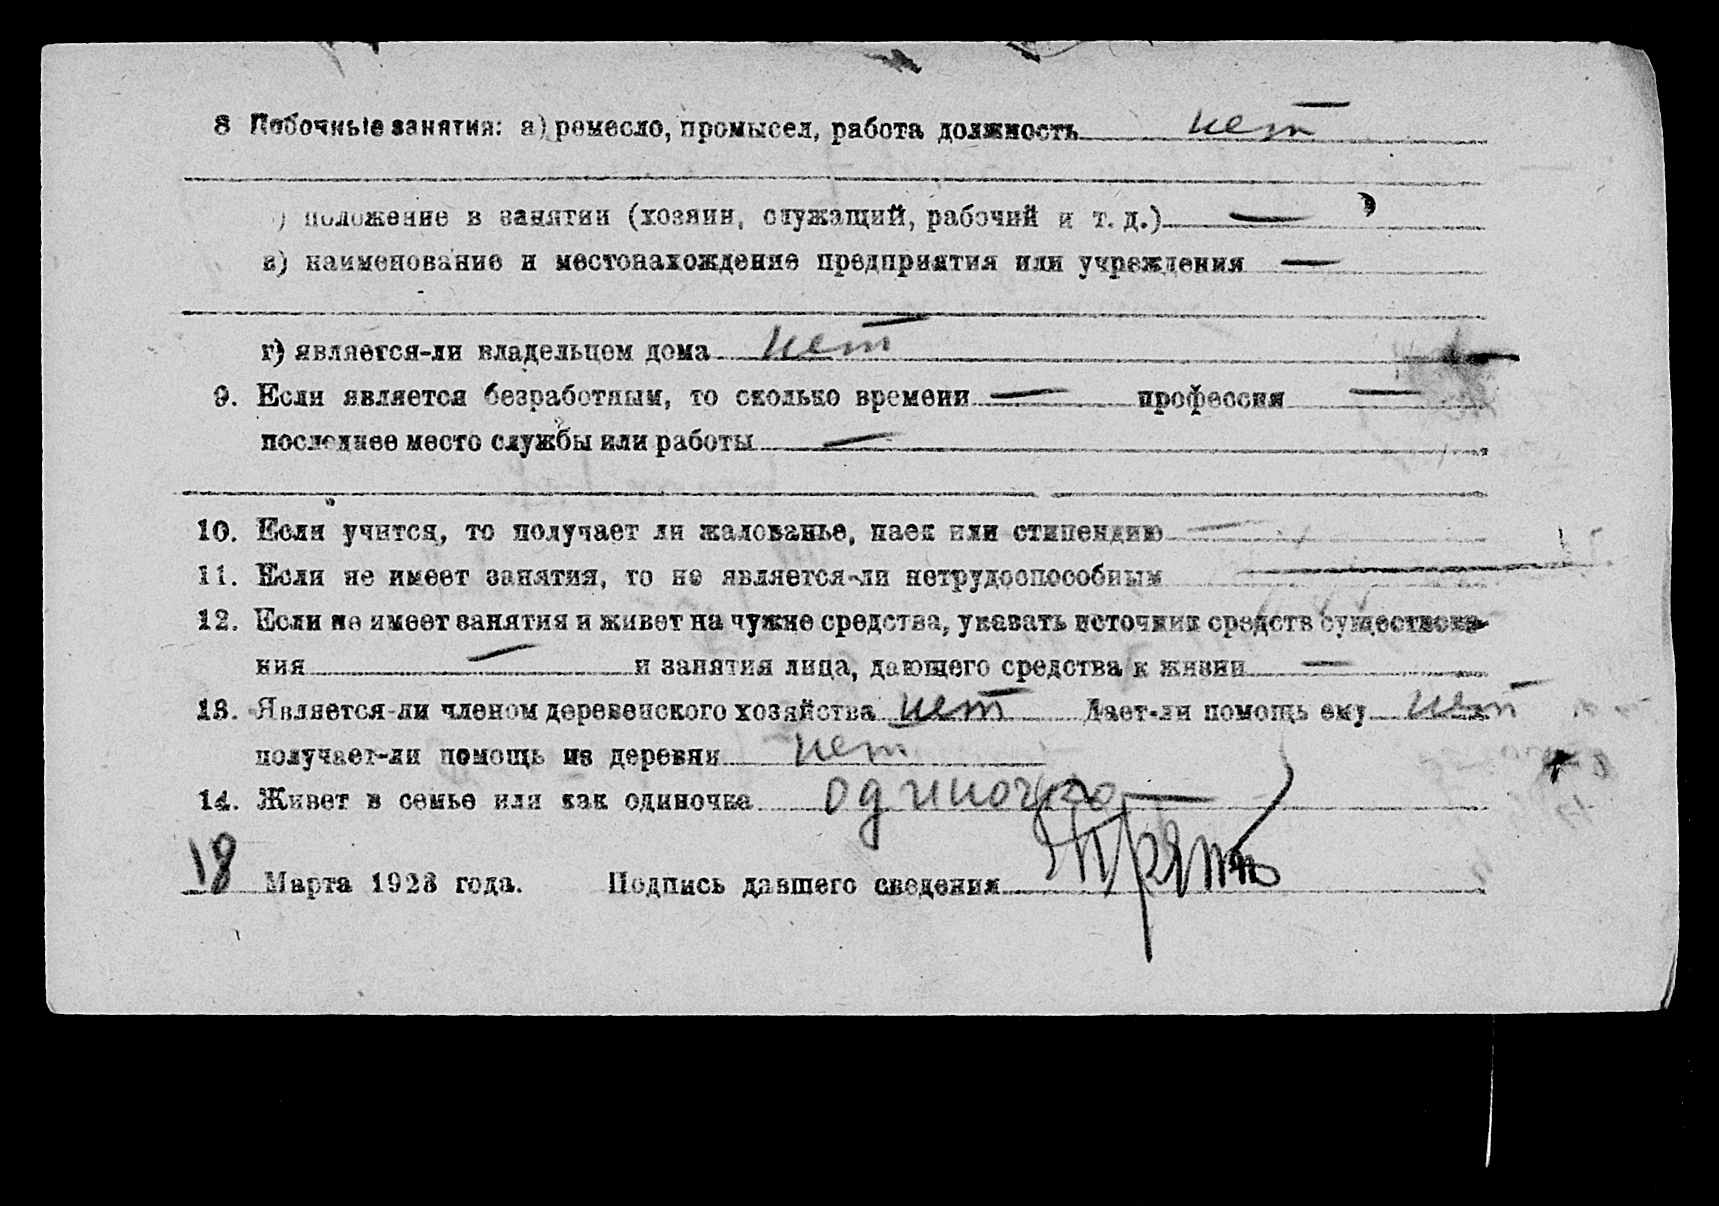 8 Побочные занятия: а) ремесло, промысел, работа должность нет
) положение в занятии (хозяин, служащий, рабочий и т. д.) —
в) наименование и местонахождение предприятия или учреждения —
г) является-ли владельцем дома нет —
9. Если является безработным, то сколько времени — профессия —
последнее место службы или работы —
10. Если учится, то получает ли жалованье, паек или стипендию —
11. Если не имеет занятия, то не является-ли нетрудоспособным —
12. Если не имеет занятия и живет на чужие средства, указать источник средств существова-
ния — и занятия лица, дающего средства к жизни —
13. Является-ли членом деревенского хозяйства нет Дает-ли помощь ему нет
получает-ли помощь из деревни нет
14. Живет в семье или как одиночка одиночка —
18 Марта 1923 года. Подпись давшего сведения